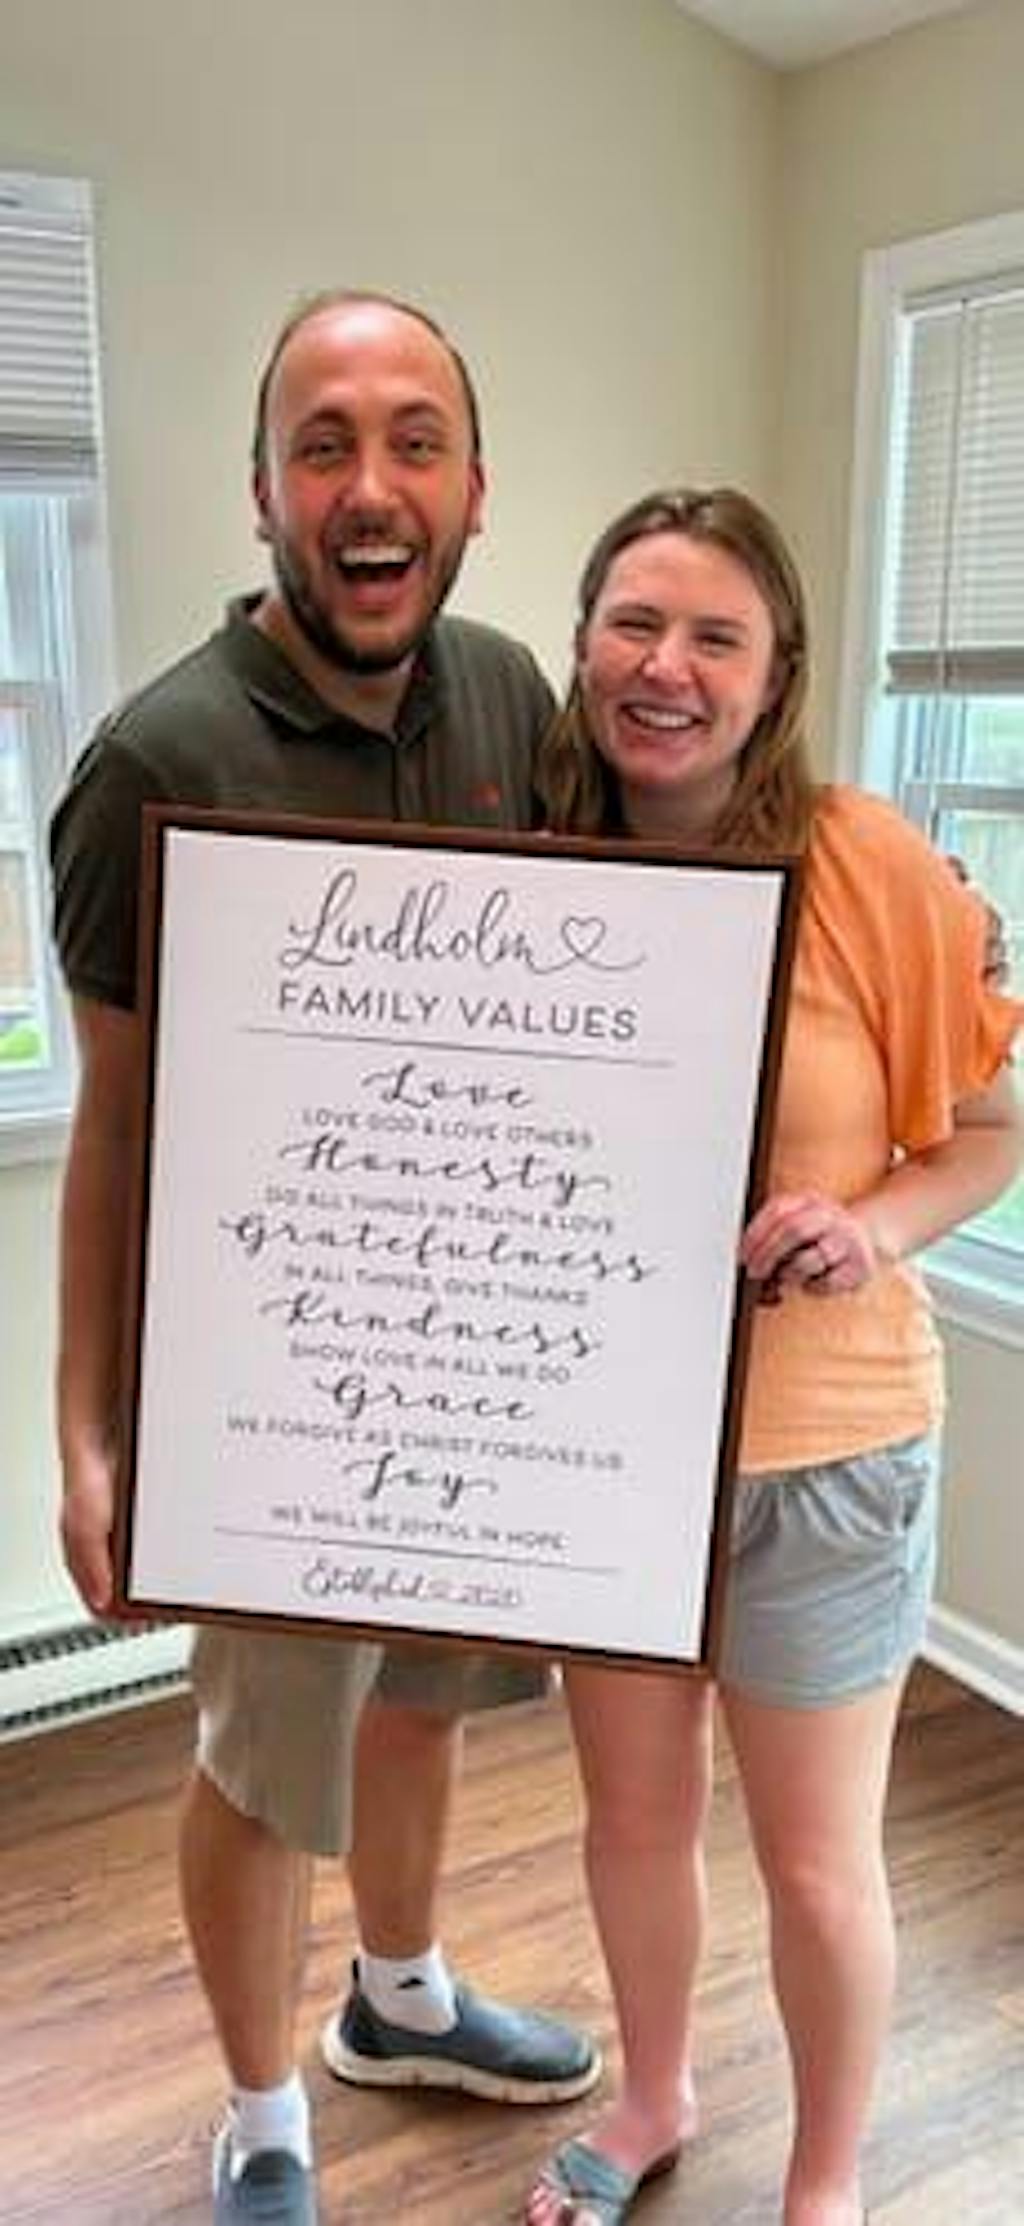 Lindholm
FAMILY VALUES
Love
LOVE GOD & LOVE OTHERS
Honesty
DO ALL THINGS IN TRUTH & LOVE
Gratefulness
IN ALL THINGS, GIVE THANKS
Kindness
SHOW LOVE IN ALL WE DO
Grace
WE FORGIVE AS CHRIST FORGIVES US
Joy
WE WILL BE JOYFUL IN HOPE
Established